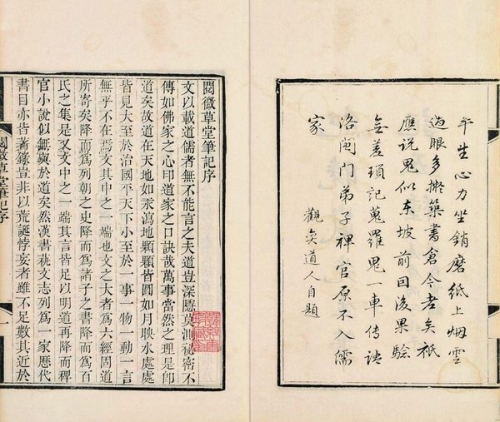 平生心力坐銷磨紙上烟雲
過眼多擬築書倉今老矣祇
應說鬼似東坡前因後果驗
無差瑣記蒐羅鬼一車傳語
洛閩門弟子稗官原不入儒
家
觀奕道人自題
閱微草堂筆記序
文以載道儒者無不能言之夫道豈深隱莫測秘密不
傳如佛家之心印道家之口訣哉萬事當然之理是卽
道矣故道在天地如汞瀉地顆顆皆圓如月映水處處
皆見大至於治國平天下小至於一事一物一動一言
無乎不在焉文其中之一端也文之大者為六經固道
所寄矣降而為列朝之史降而為諸子之書降而為百
氏之集是又文中之一端其言皆足以明道再降而稗
官小說似無與於道矣然漢書藝文志列為一家歷代
書目亦皆著錄豈非以荒誕悖妄者雖不足數其近於
閱微草堂筆記序
一